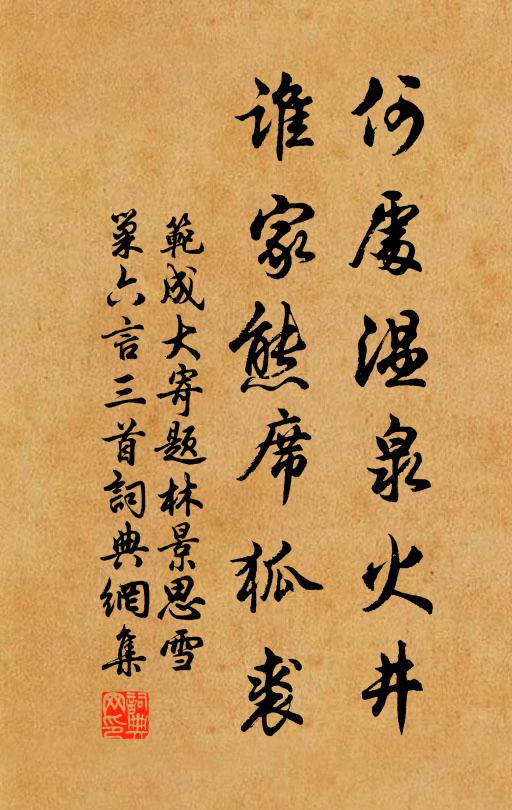 何處温泉火井
誰家熊席狐裘
範成大寄題林景思雪
巢六言三首詞典網集
詞典网印